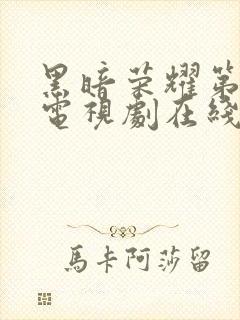 黑暗荣耀第
電視劇在綫
馬卡阿莎留